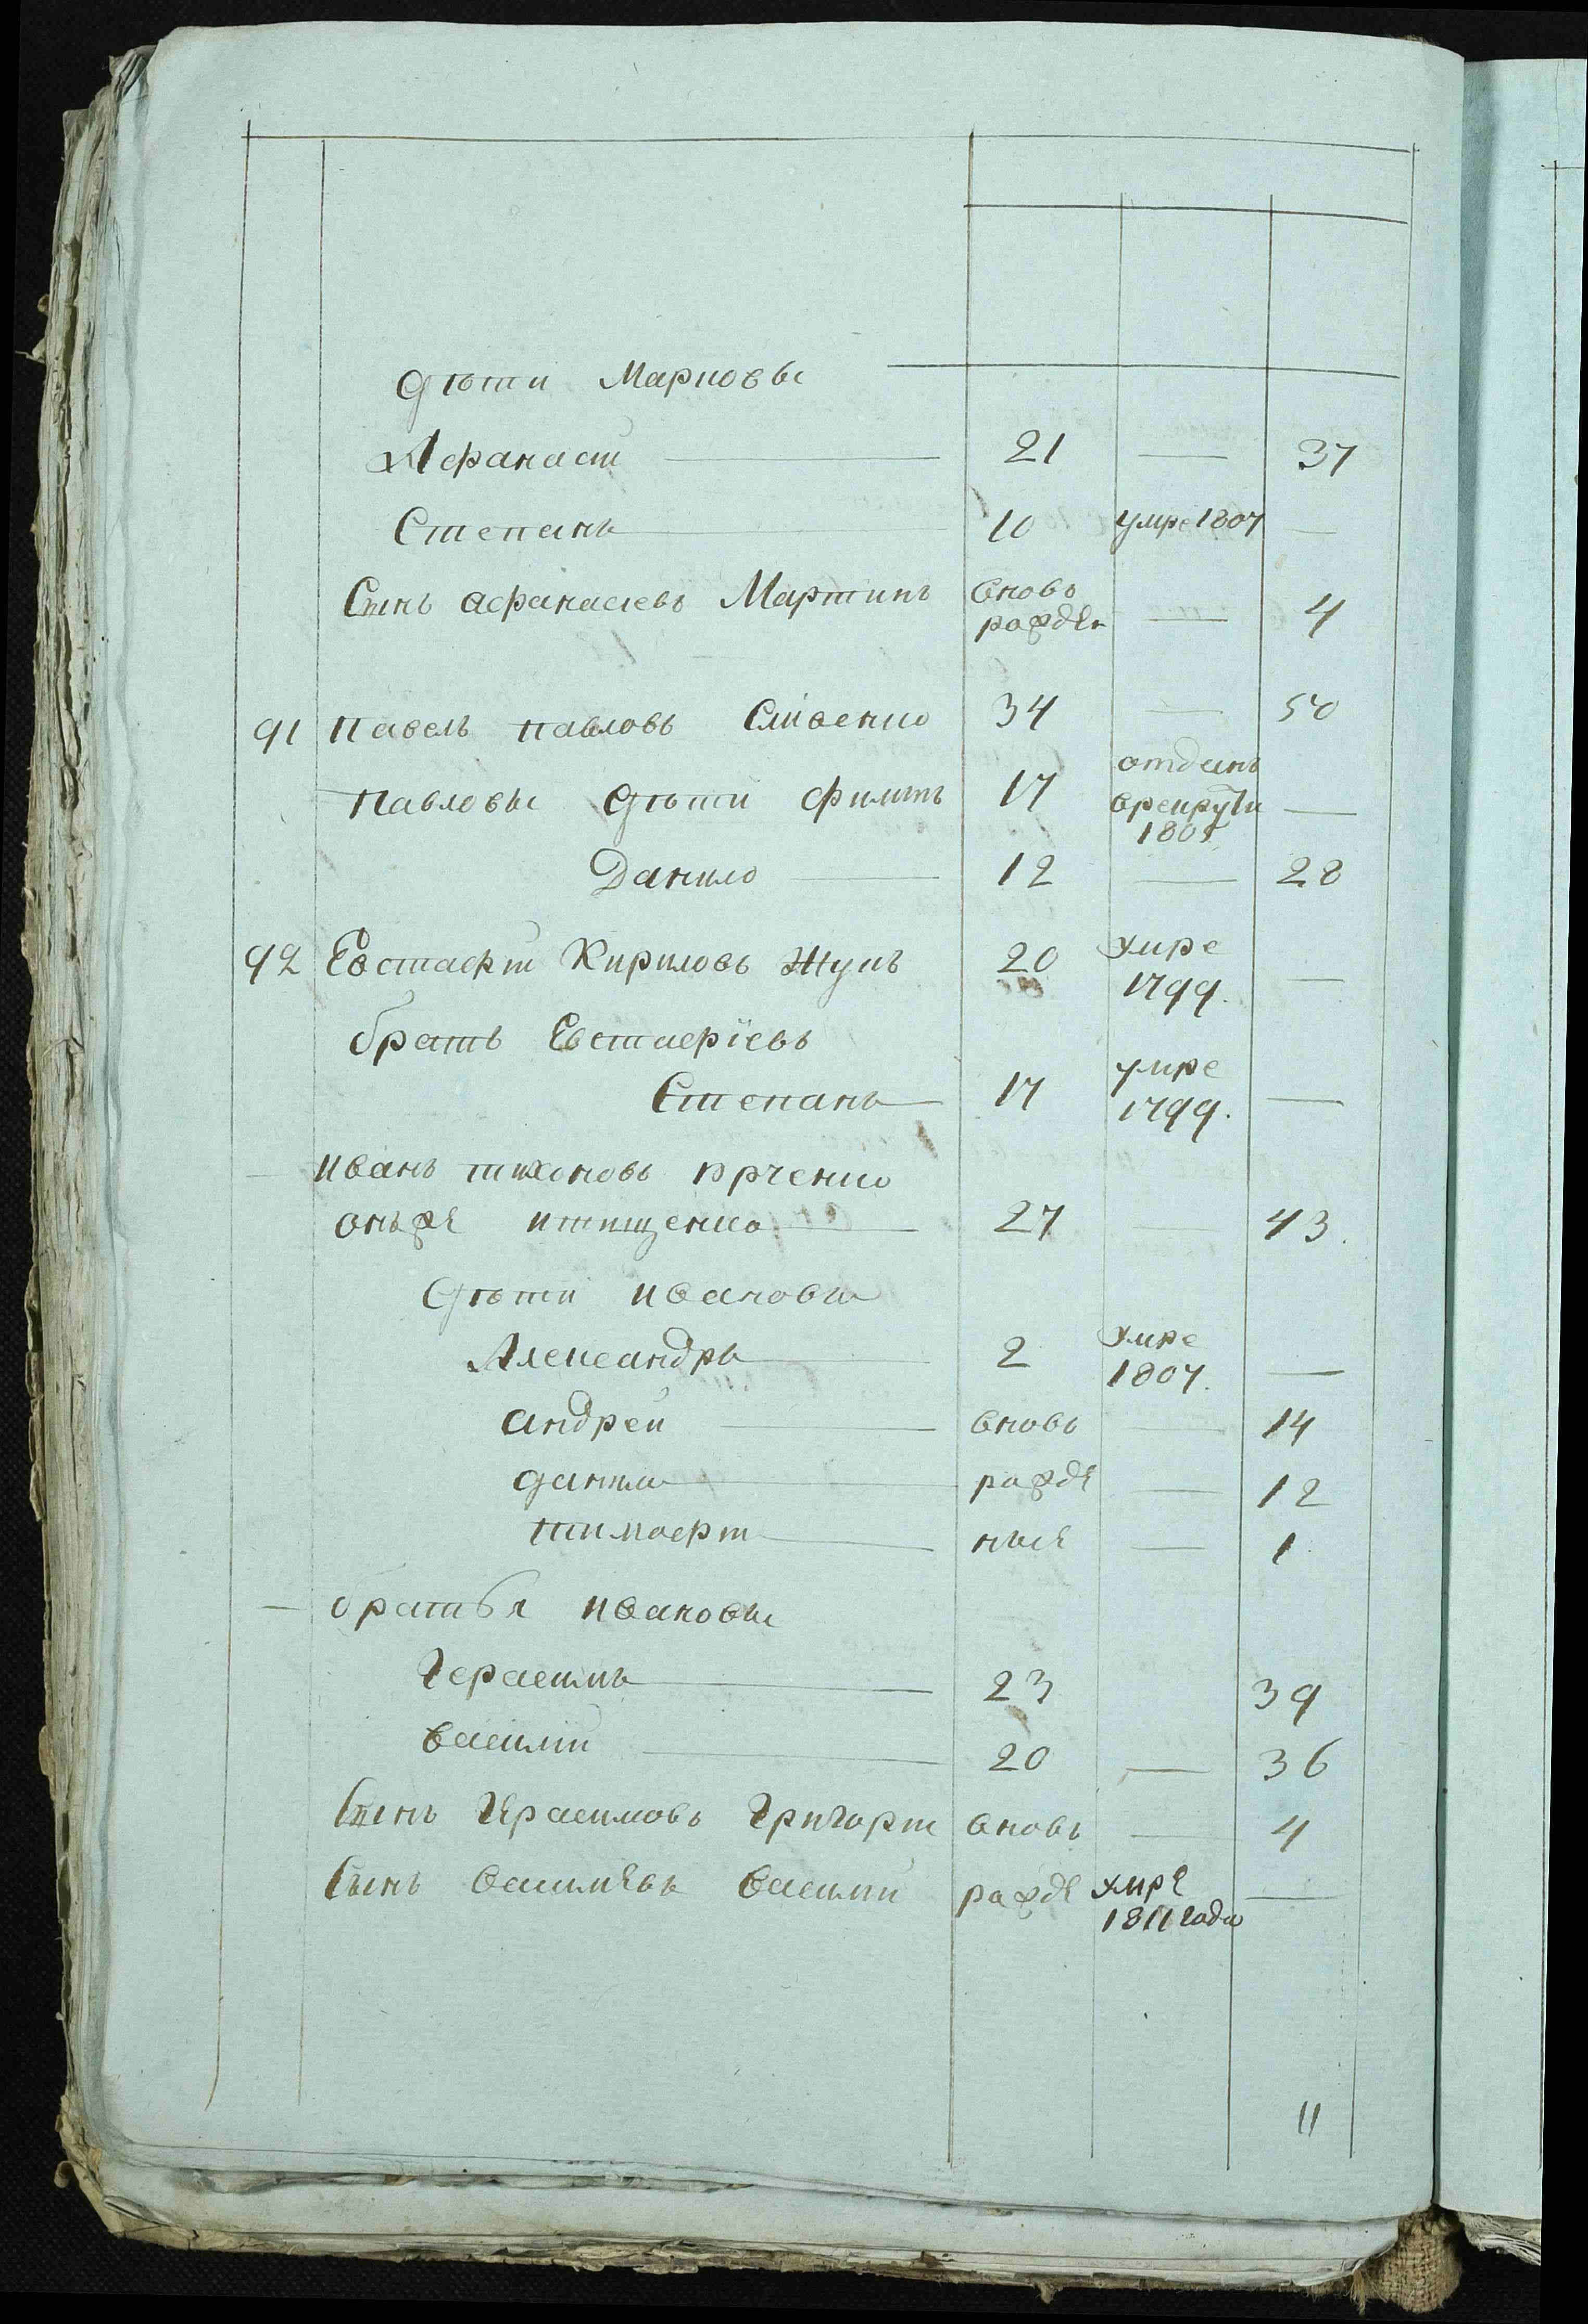 дѣти Марковы
Афанасій 21 — 37
Степанъ 10 умре 1807 —
Сынъ афанасіевъ Мартинъ вновь рожден — 4
91 павелъ павловъ 34 — 50
павловы дѣти филипъ 17 отданъ врекруты 180 —
Данило 12 — 28
92 Евстафій Кириловъ Жукъ 20 умре 1799. —
братъ Евстафіевъ
Степанъ 17 умре 1799. —
— иванъ тихоновъ
онъже 27 — 43.
дѣти ивановы
Александръ 2 умре 1807. —
андрей вновь — 14
данило рожде — 12
тимофей ные — 1
— братья ивановы
Герасимъ 23 39
василій 20 — 36
Сынъ Герасимовъ Григорій вновь — 4
Сынъ васильевъ василій рожде умре 1811 года —
11